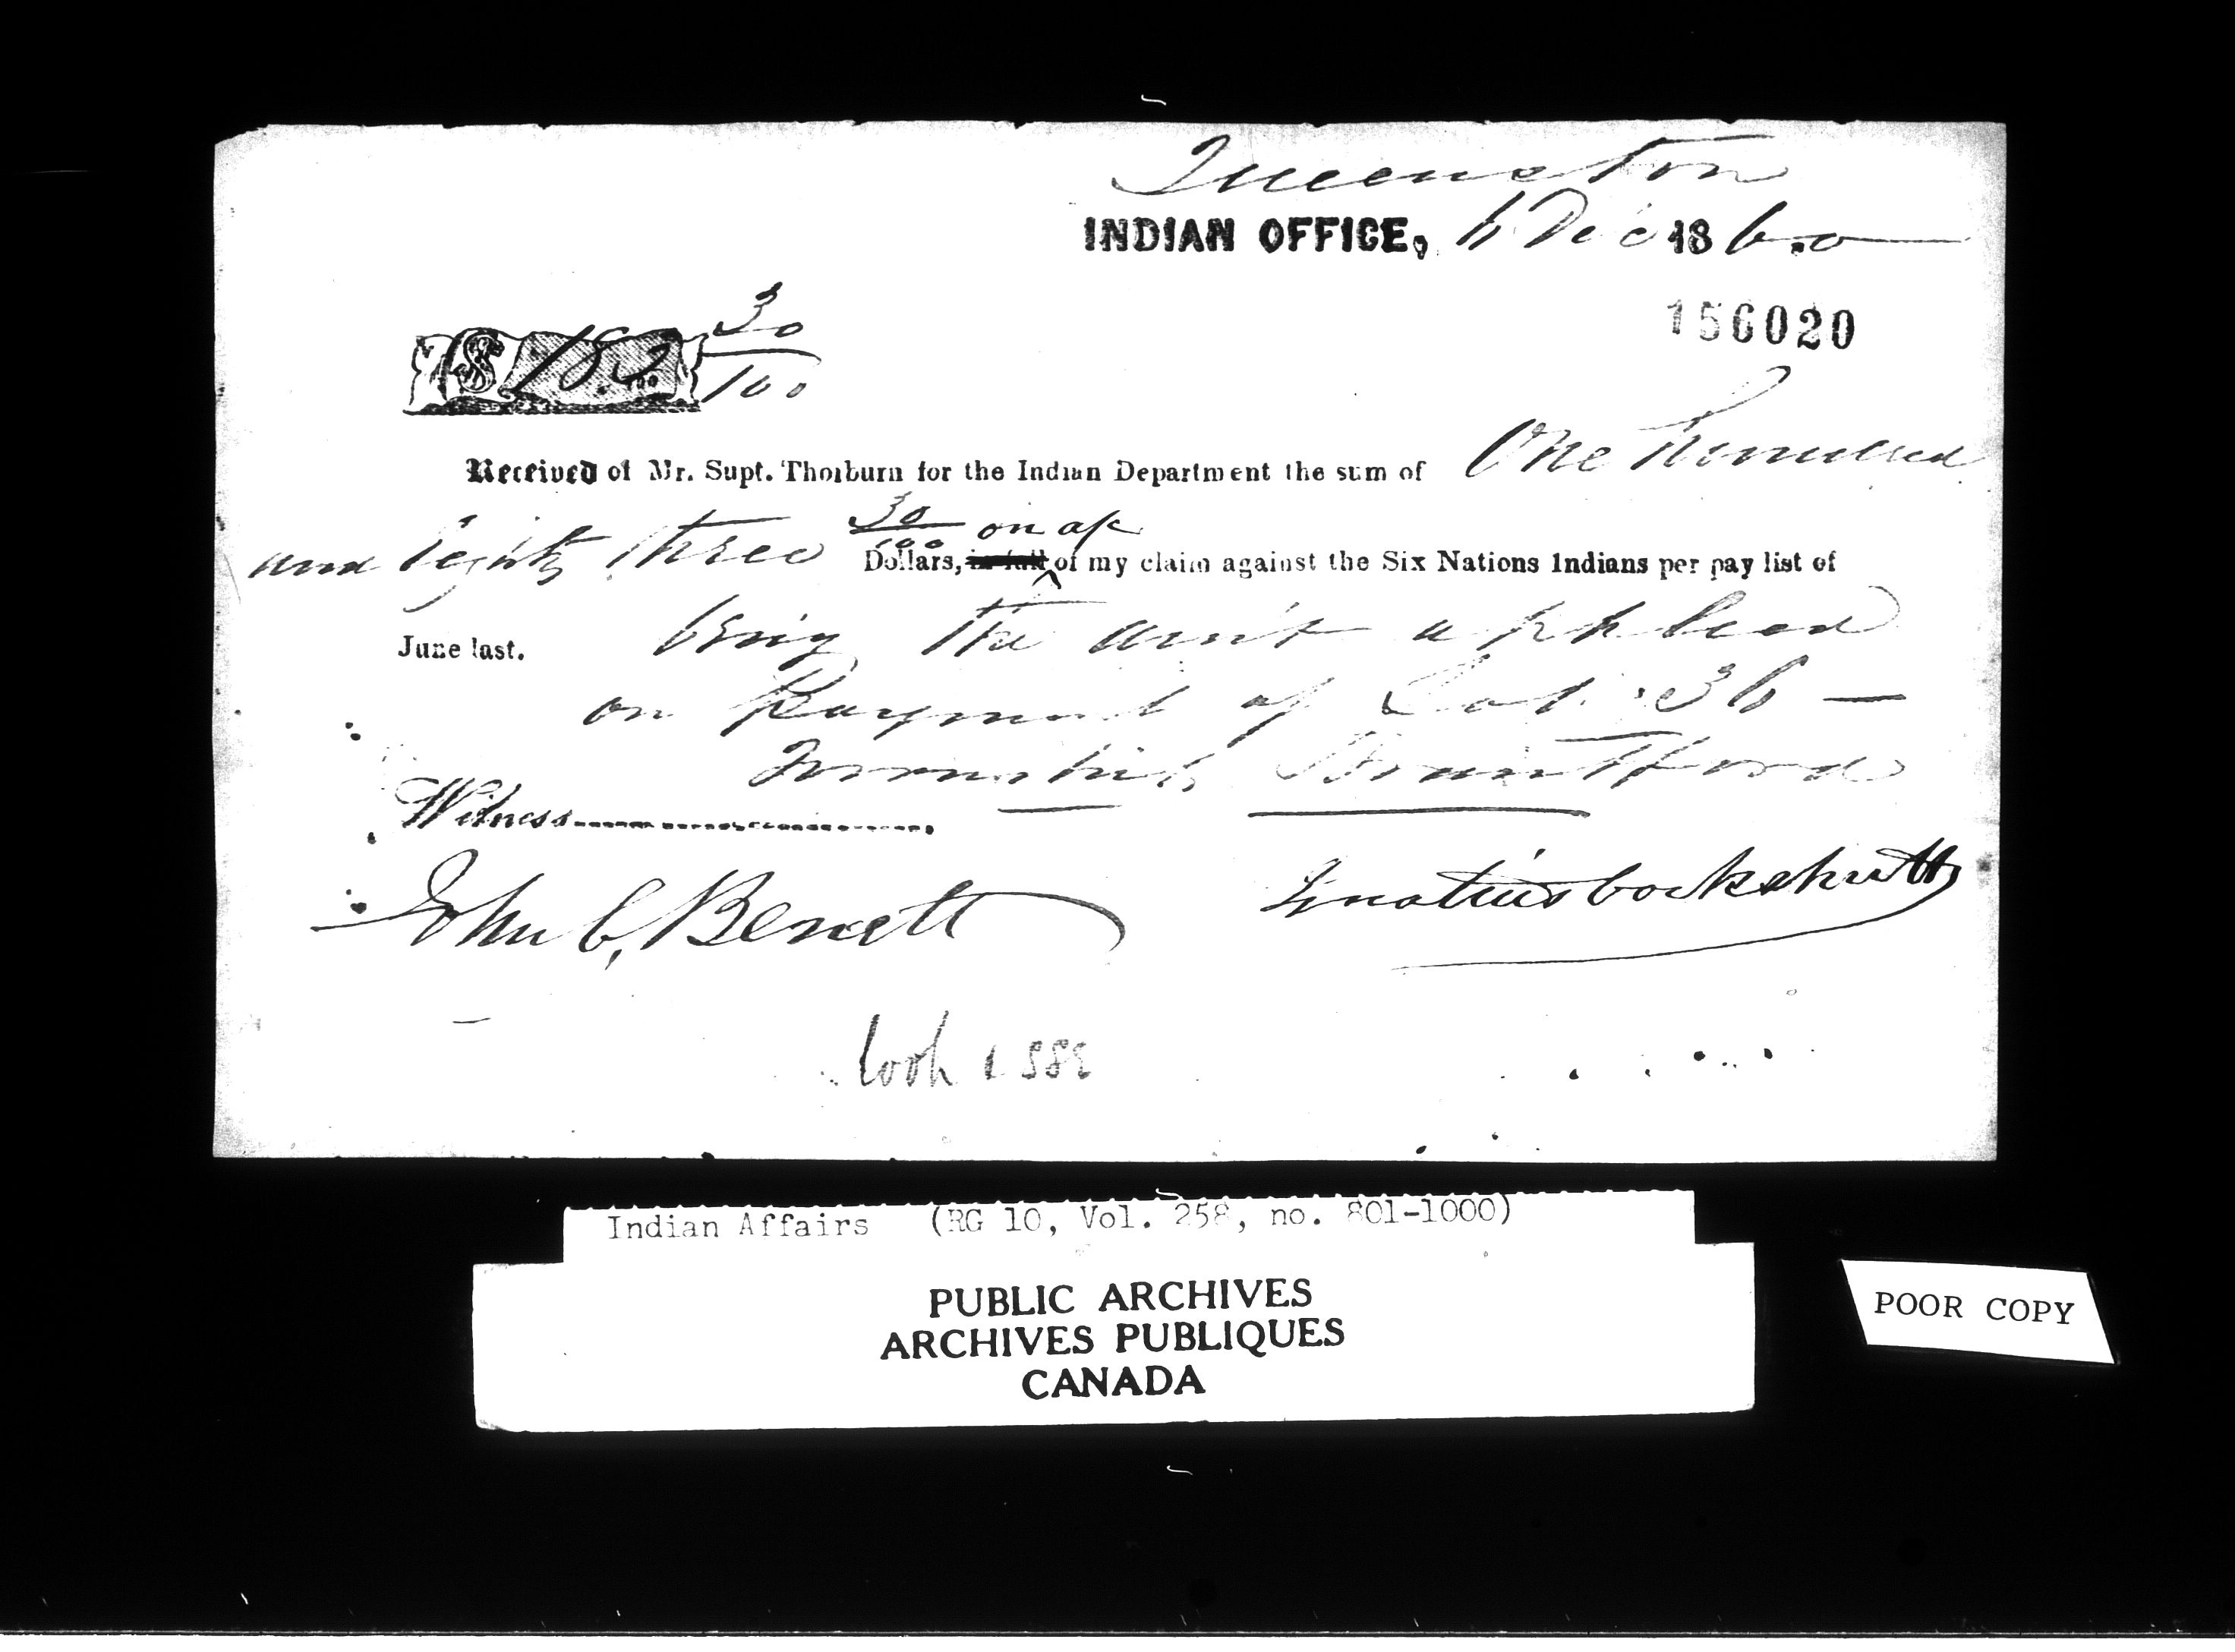 Queenston
INDIAN OFFICE, 6 Dec 1860
156020
$ 183 30/100
Received of Mr. Supt. Thorburn for the Indian Department the sum of One hundred
and Eighty three 30/100 Dollars, in full on a/c of my claim against the Six Nations Indians per pay list of
June last. being the am't applied
on Payment of Lot 36 —
Township Brantford
Witness
John C. Benett
Ignatius Cockshutt
Indian Affairs (RG 10, Vol. 258, no. 801-1000)
PUBLIC ARCHIVES
ARCHIVES PUBLIQUES
CANADA
POOR COPY